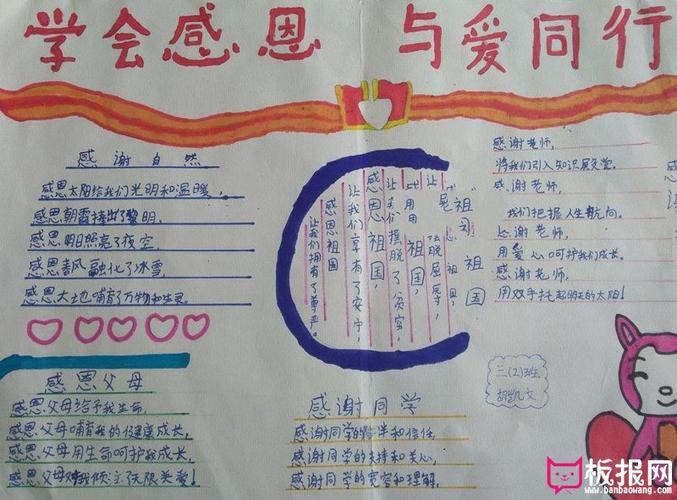 学会感恩 与爱同行
感谢自然
感恩太阳给我们光明和温暖,
感恩朝霞捧出了黎明,
感恩明月照亮了夜空,
感恩春风融化了冰雪,
感恩大地哺育了万物和生灵。
感恩父母
感恩父母给予我生命,
感恩父母哺育我的健康成长,
感恩父母用生命呵护我成长,
感恩父母对我倾注了无限关爱!
感恩祖国
祖国
感恩祖国,
让我们摆脱了贫穷,
感恩祖国,
让我们享有了安宁,
感恩祖国
让我们拥有了尊严。
感谢同学
感谢同学的陪伴和信任,
感谢同学的支持和关心,
感谢同学的宽容和理解,
感谢老师,
将我们引入知识殿堂。
感谢老师,
我们把握人生航向。
感谢老师,
用爱心呵护我们成长。
感谢老师,
用双手托起明天的太阳!
三(2)班
胡凯文
板报网
www.banbaowang.com